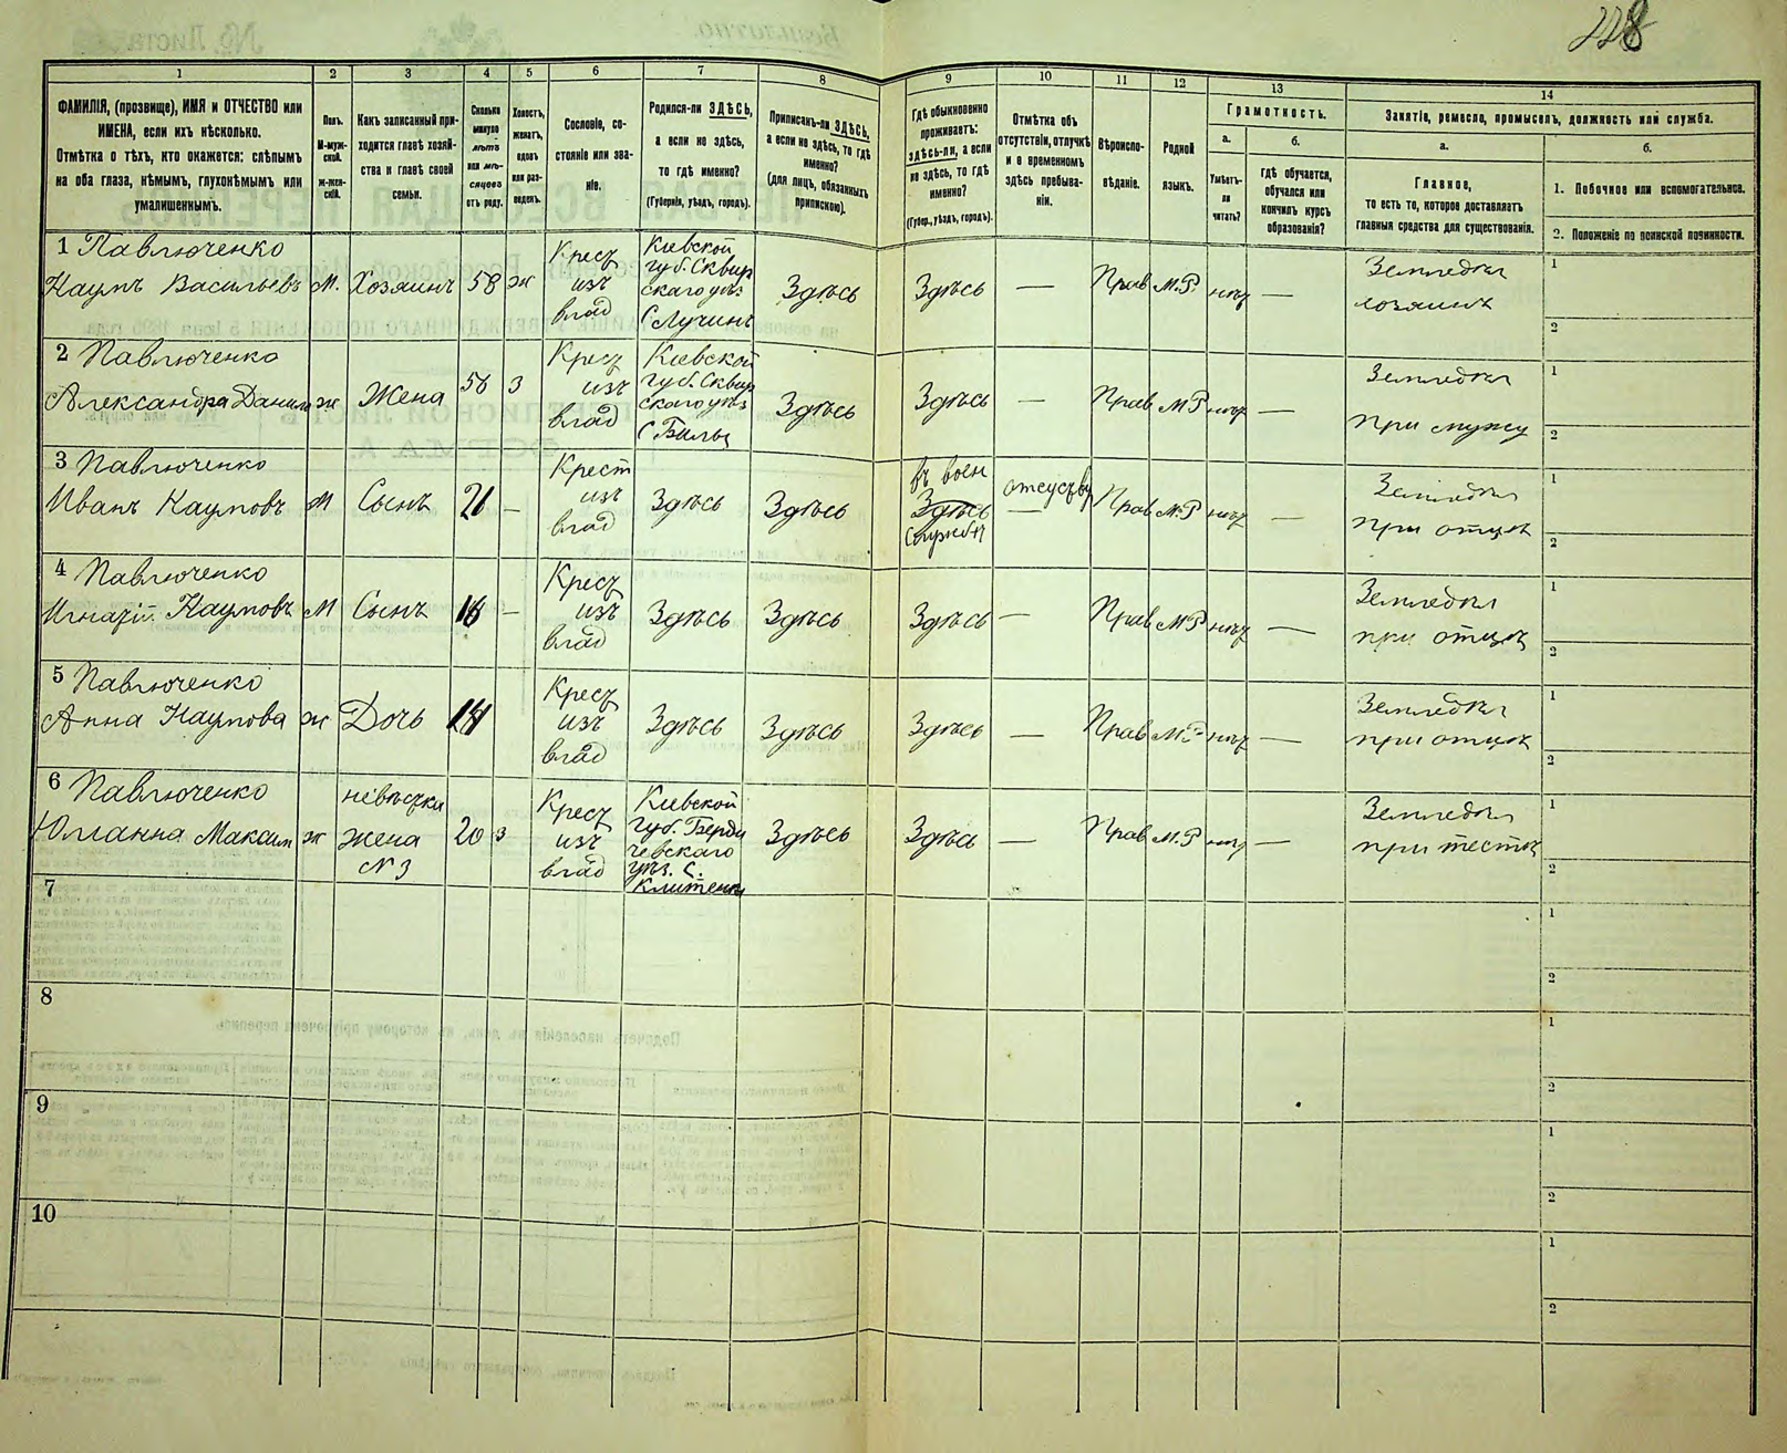 228
1
2
3
4
5
6
7
8
9
10
11
12
13
14
ФАМИЛІЯ, (прозвище), ИМЯ и ОТЧЕСТВО или
ИМЕНА, если ихъ нѣсколько.
Отмѣтка о тѣхъ, кто окажется: слѣпымъ
на оба глаза, нѣмымъ, глухонѣмымъ или
умалишеннымъ.
Полъ.
М-муж-
ской.
ж-жен-
скій.
Какъ записанный при-
ходится главѣ хозяй-
ства и главѣ своей
семьи.
Сколько
минуло
лѣтъ
или мѣ-
сяцевъ
отъ роду.
Холостъ,
женатъ,
вдовъ
или раз-
веденъ.
Сословіе, со-
стояніе или зва-
ніе.
Родился-ли ЗДѢСЬ,
а если не здѣсь,
то гдѣ именно?
(Губернія, уѣздъ, городъ).
Приписанъ-ли ЗДѢСЬ,
а если не здѣсь, то гдѣ
именно?
(для лицъ, обязанныхъ
припискою).
Гдѣ обыкновенно
проживаетъ:
здѣсь-ли, а если
не здѣсь, то гдѣ
именно?
(Губер., уѣздъ, городъ).
Отмѣтка объ
отсутствіи, отлучкѣ
и о временномъ
здѣсь пребыва-
ніи.
Вѣроиспо-
вѣданіе.
Родной
языкъ.
Грамотность.
а.
Умѣетъ-
ли
читать?
б.
гдѣ обучается,
обучался или
кончилъ курсъ
образованія?
Занятіе, ремесло, промыселъ, должность или служба.
а.
Главное,
то есть то, которое доставляетъ
главныя средства для существованія.
б.
1. Побочное или вспомогательное.
2. Положеніе по воинской повинности.
1 Павлюченко
Наумъ Васильевъ М. Хозяинъ 58 ж
Крест
изъ
влад
Кіевской
губ. Сквир
скаго уѣз
С Лучинъ
Здѣсь Здѣсь — Прав М.Р. нѣт —
Земледѣл
хозяинъ
1
2
2 Павлюченко
Александра Данило ж Жена 56 З
Крест
изъ
влад
Кіевской
губ. Сквир
скаго уѣз
Здѣсь Здѣсь — Прав М Р нѣт —
Земледѣл
при мужу
1
2
3 Павлюченко
Иванъ Наумовъ М Сынъ 21 —
Крест
изъ
влад
Здѣсь Здѣсь
въ воен
Здѣсь
службѣ
отсуству
— Прав М.Р нѣт —
Земледѣл
при отцѣ
1
2
4 Павлюченко
Игнатій Наумовъ М Сынъ 18 —
Крест
изъ
влад
Здѣсь Здѣсь Здѣсь — Прав М Р нѣт —
Земледѣл
при отцѣ
1
2
5 Павлюченко
Анна Наумова ж Дочь 14
Крест
изъ
влад
Здѣсь Здѣсь Здѣсь — Прав М.Р нѣт —
Земледѣл
при отцѣ
1
2
6 Павлюченко
Юлианна Максим ж
невѣстка
жена
№ 3
20 з
Крест
изъ
влад
Кіевской
губ. Берди
чевскаго
уѣз. С.
Клитенки
Здѣсь Здѣсь — Прав М.Р нѣт —
Земледѣл
при тестѣ
1
2
7
1
2
8
1
2
9
1
2
10
1
2